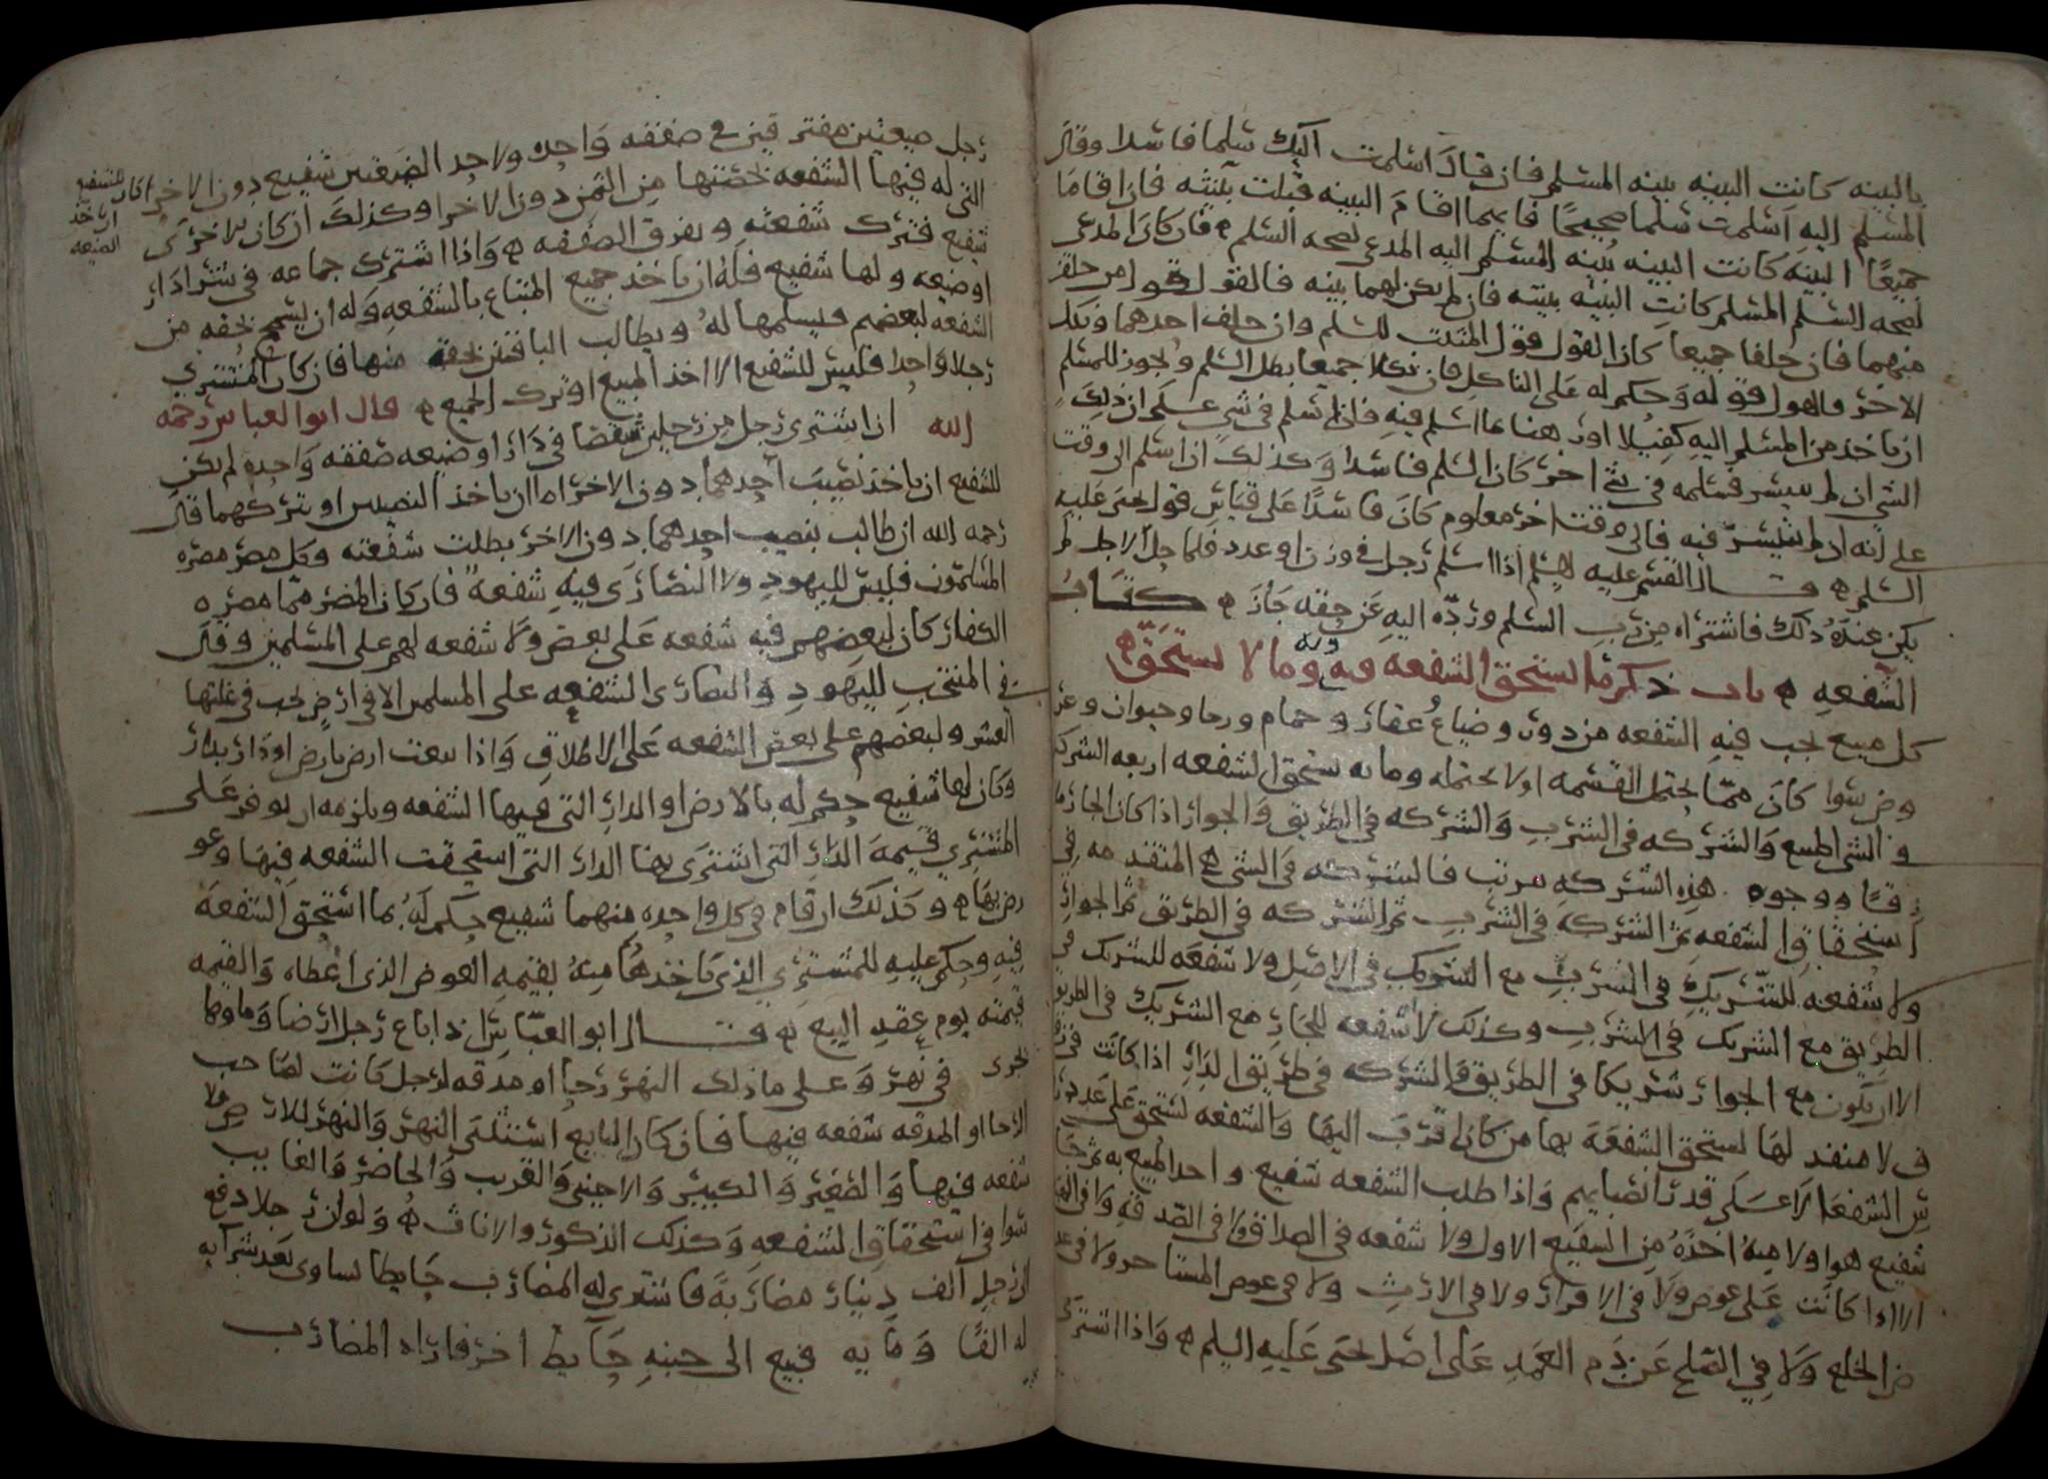 بالبينه كانت البينه بينه المسلم فان قال اسلمت اليك سلما فاسدا وقال
المسلم اليه اسلمت سلما صحيحًا فايهما اقام البينه قبلت بينته فان اقاما
جميعًا البينه كانت البينه بينه المسلم اليه المدعي لصحه السلم فان كان المدعي
لصحه السلم المسلم كانت البينه بينته فان لم يكن لهما بينه فالقول قول من حلف
منهما فان حلفا جميعا كان القول قول المثبت للسلم وان حلف احدهما ونكل
الاخر فالقول قوله وحكم له على الناكل فان نكلا جميعا بطل السلم ويجوز للمسلم
ان ياخذ من المسلم اليه كفيلا او رهنا بما اسلم فيه فان اسلم في شي على ان ذلك
الشي ان لم يتيسر فسلمه في شي اخر كان السلم فاسدا وكذلك ان اسلم الى وقت
على انه ان لم يتيسر فيه فالى وقت اخر معلوم كان فاسدًا على قياس قول يحيى عليه
السلم قال القسم عليه السلم اذا اسلم رجل في وزن او عدد فلما حل الاجل لم
يكن عنده ذلك فاشتراه من رب السلم ورده اليه عن حقه جاز كتاب
الشفعه باب ذكر ما يستحق الشفعه فيه وبه وما لا يستحق
كل مبيع يجب فيه الشفعه من دور وضياع عقار وحمام ورحا وحيوان وعر
وض سوا كان مما يحتمل القسمه او لا يحتمله وما به يستحق الشفعه اربعه الشركه
في الشي المبيع والشركه في الشرب والشركه في الطريق والجوار اذا كان الجار ملا
زقًا ووجوه هذه الشركه مرتب فالشركه في الشي هي المتقدمه في
استحقاق الشفعه ثم الشركه في الشرب ثم الشركه في الطريق ثم الجوار
ولا شفعه للشريك في الشرب مع الشريك في الاصل ولا شفعه للشريك في
الطريق مع الشريك في الشرب وكذلك لا شفعه للجار مع الشريك في الطريق
الا ان يكون مع الجوار شريكا في الطريق والشركه في طريق الدار اذا كانت في زقا
ق لا منفذ لها يستحق الشفعه بها من كان اقرب اليها والشفعه تستحق على عدد رو
س الشفعا لا على قدر انصبايهم واذا طلب الشفعه شفيع واخذ المبيع به ثم جا
شفيع هو اولا منه اخذه من الشفيع الاول ولا شفعه في الصداق ولا في الصدقه ولا في الهبه
الا اذا كانت على عوض ولا في الاقرار ولا في الارث ولا في عوض المستاجر ولا في عو
ض الخلع ولا في الصلح عن دم العمد على اصل يحيى عليه السلم واذا اشترى
رجل ضيعتين مفترقتين في صفقه واحده ولاحد الضيعتين شفيع دون الاخرى كان للشفيع
ان ياخذ
الضيعه
التي له فيها الشفعه بحصتها من الثمن دون الاخرا وكذلك ان كان للاخرى
شفيع فترك شفعته وتفرق الصفقه واذا اشترك جماعه في شرا دار
او ضيعه ولها شفيع فله ان ياخذ جميع المبتاع بالشفعه وله ان يسمح بحقه من
الشفعه لبعضهم فيسلمها له ويطالب الباقين بحقه منها فان كان المشتري
رجلا واحدا فليس للشفيع الا اخذ المبيع او ترك الجميع قال ابو العباس رحمه
الله اذا اشترى رجل من رجلين شقصا في دار او ضيعه صفقه واحده لم يكن
للشفيع ان ياخذ نصيب احدهما دون الاخر اما ان ياخذ النصيبين او يتركهما قال
رحمه الله ان طالب بنصيب احدهما دون الاخر بطلت شفعته وكل مصر مصره
المسلمون فليس لليهود ولا النصارى فيه شفعه فان كان المصر مما مصره
الكفار كان لبعضهم فيه شفعه على بعض ولا شفعه لهم على المسلمين وقال
في المنتخب لليهود والنصارى الشفعه على المسلمين الا في ارض يجب في غلتها
العشر ولبعضهم على بعض الشفعه على الاطلاق واذا بيعت ارض بارض او دار بدار
وكان لها شفيع حكم له بالارض او الدار التي فيها الشفعه ويلزمه ان يوفر على
المشتري قيمه الدار التي اشترى بها الدار التي استحقت الشفعه فيها وعو
رض بها وكذلك ان قام في كل واحده منهما شفيع حكم له بما استحق الشفعه
فيه وحكم عليه للمشتري الذي ياخذها منه بقيمه العوض الذي اعطاه والقيمه
قيمته يوم عقد البيع قال ابو العباس اذا باع رجل ارضا وما وكا
يجرى في نهر وعلى ما ذلك النهر رحا او مدقه لرجل كانت لصاحب
الرحا او المدقه شفعه فيها فان كان البايع استثنى النهر والنهر للارض فلا
شفعه فيها والصغير والكبير والاجنبي والقريب والحاضر والغايب
سوا في استحقاق الشفعه وكذلك الذكور والاناث ولو ان رجلا دفع
الى رجل الف دينار مضاربة فاشترى له المضارب حايطا يساوي بعد شرايه
له الفًا ومايه فبيع الى جنبه حايط اخر فاراد المضارب